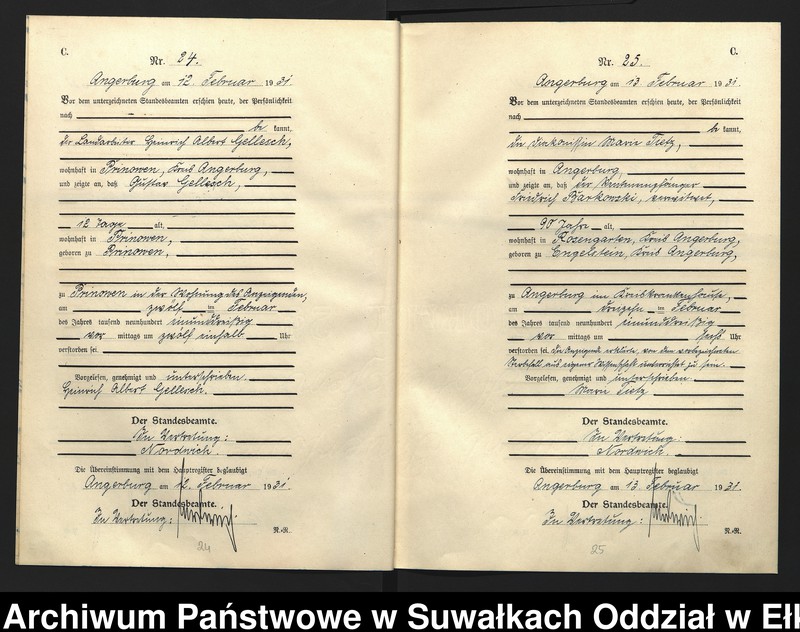 C.
Nr. 24.
Angerburg am 12. Februar 1931
Vor dem unterzeichneten Standesbeamten erschien heute, der Persönlichkeit
nach
be kannt,
der Landarbeiter Heinrich Albert Gellesch,
wohnhaft in Prinowen, Kreis Angerburg,
und zeigte an, daß Gustav Gellesch,
12 Tage alt,
wohnhaft in Prinowen,
geboren zu Prinowen,
zu Prinowen in der Wohnung des Anzeigenden,
am zwölf ten Februar
des Jahres tausend neunhundert einunddreißig
vor mittags um zwölf einhalb Uhr
verstorben sei.
Vorgelesen, genehmigt und unterschrieben.
Heinrich Albert Gellesch.
Der Standesbeamte.
In Vertretung:
Nordwich.
Die Übereinstimmung mit dem Hauptregister beglaubigt
Angerburg am 12. Februar 1931.
Der Standesbeamte.
In Vertretung:
N.-R.
24
C.
Nr. 25.
Angerburg am 13. Februar 1931
Vor dem unterzeichneten Standesbeamten erschien heute, der Persönlichkeit
nach
be kannt,
die Diakonissin Marie Tietz,
wohnhaft in Angerburg,
und zeigte an, daß der Rentenempfänger
Friedrich Barkowski, verwitwet,
90 Jahre alt,
wohnhaft in Rosengarten, Kreis Angerburg,
geboren zu Engelstein, Kreis Angerburg,
zu Angerburg im Kreiskrankenhause,
am dreizehn ten Februar
des Jahres tausend neunhundert einunddreißig
vor mittags um sechs Uhr
verstorben sei. Die Anzeigende erklärte, von dem vorbezeichneten
Sterbefall aus eigener Wissenschaft unterrichtet zu sein.
Vorgelesen, genehmigt und unterschrieben.
Marie Tietz
Der Standesbeamte.
In Vertretung:
Nordwich.
Die Übereinstimmung mit dem Hauptregister beglaubigt
Angerburg am 13. Februar 1931.
Der Standesbeamte.
In Vertretung:
N.-R.
25
Archiwum Państwowe w Suwałkach Oddział w Ełk